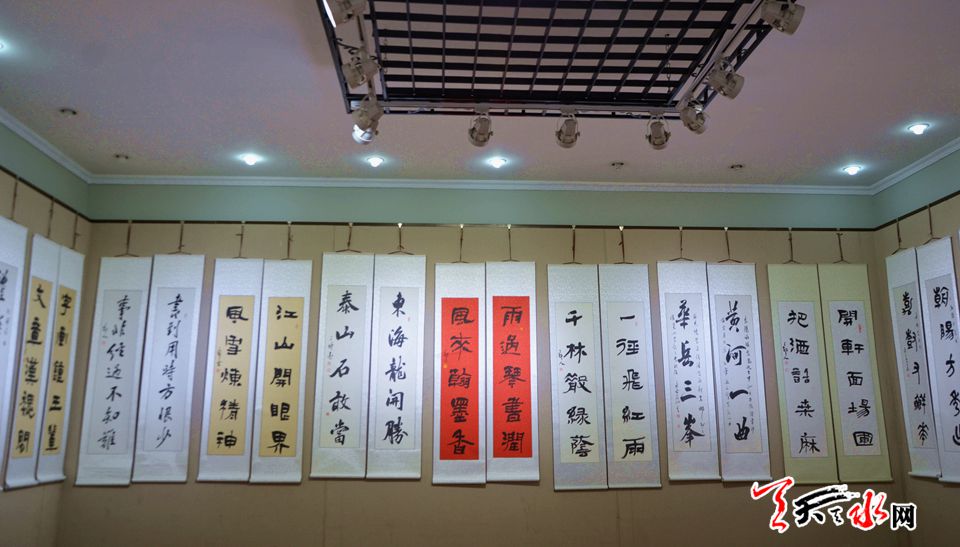 朝陽方
開軒面場圃
把酒話桑麻
黃河一曲
華岳三峯
一徑飛紅雨
千林散綠蔭
雨過琴書潤
風來翰墨香
東海龍開勝
泰山石敢當
江山開眼界
風雪煉精神
書到用時方恨少
事非經過不知難
字畫鍾王
文章漢魏間
天天天水网